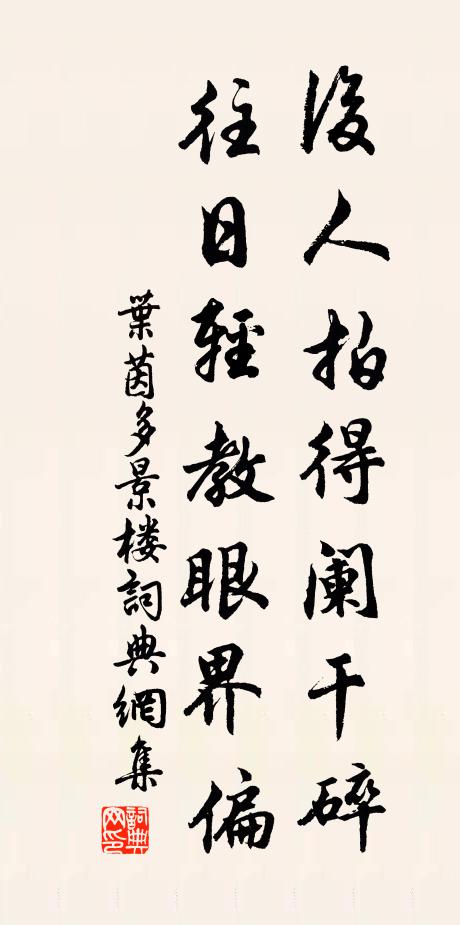 後人拍得阑干碎
往日輕教眼界偏
葉茵多景楼詞典網集
詞典
网印